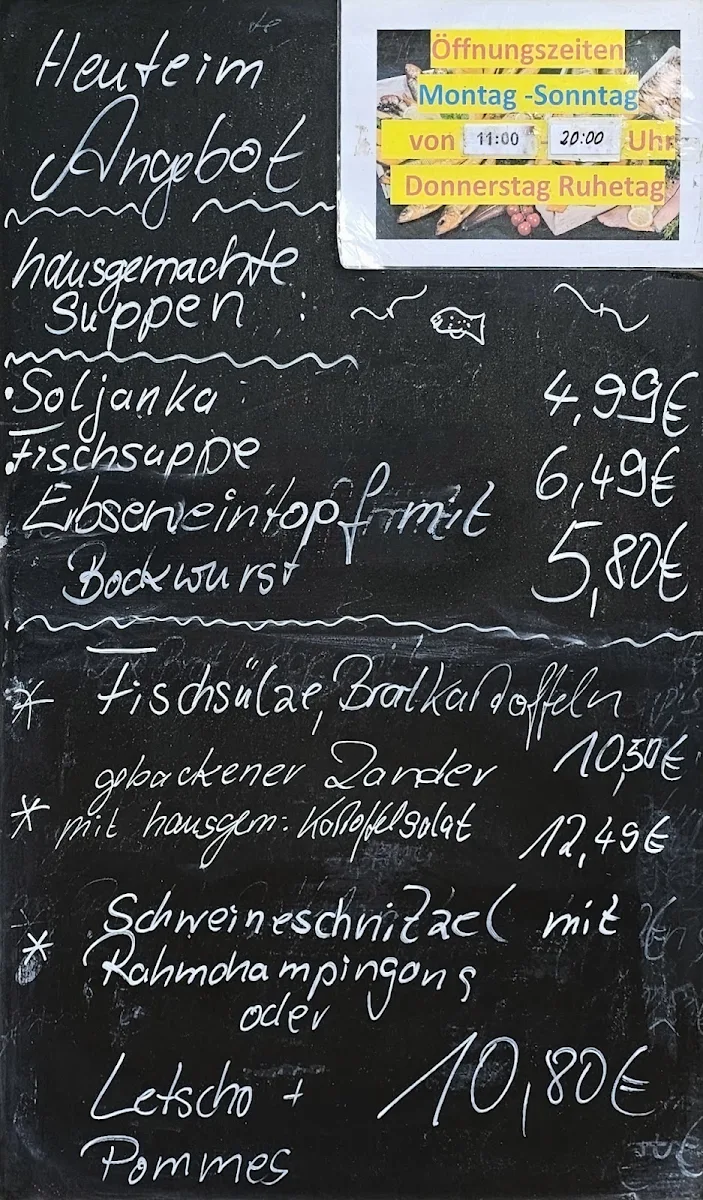 Heute im
Angebot
Öffnungszeiten
Montag -Sonntag
von 11:00 - 20:00 Uhr
Donnerstag Ruhetag
hausgemachte
Suppen :
• Soljanka 4,99€
• Fischsuppe 6,49€
Erbseneintopf mit
Bockwurst 5,80€
* Fischsülze, Bratkartoffeln
10,50€
gebackener Zander
* mit hausgem: Kartoffelsalat 12,49€
Schweineschnitzel mit
* Rahmchampingons
oder
Letscho + 10,80€
Pommes